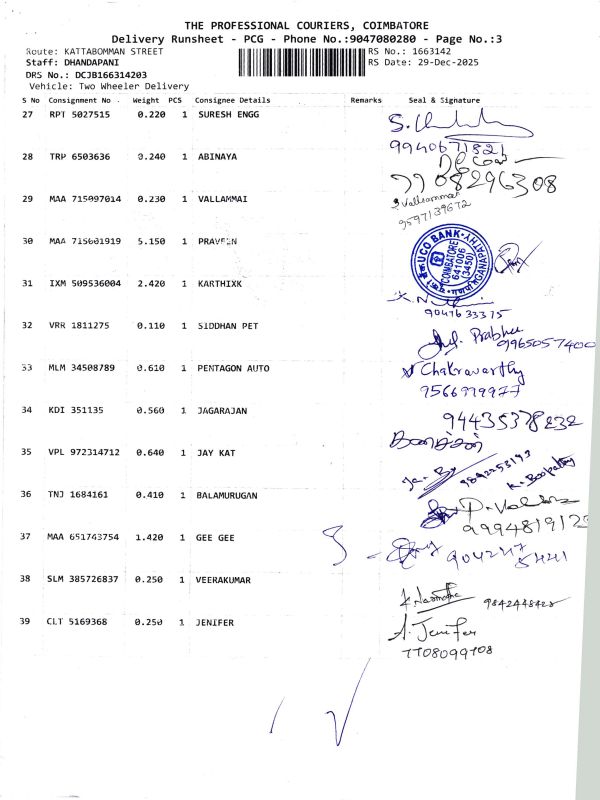 THE PROFESSIONAL COURIERS, COIMBATORE
Delivery Runsheet - PCG - Phone No.:9047080280 - Page No.:3
Route: KATTABOMMAN STREET RS No.: 1663142
Staff: DHANDAPANI RS Date: 29-Dec-2025
DRS No.: DCJB166314203
Vehicle: Two Wheeler Delivery
S No Consignment No Weight PCS Consignee Details Remarks Seal & Signature
27 RPT 5027515 0.220 1 SURESH ENGG
9940671821
28 TRP 6503636 0.240 1 ABINAYA
7708296308
29 MAA 715997014 0.230 1 VALLAMMAI
9597139672
30 MAA 715601919 5.150 1 PRAVEEN
UCO BANK GANAPATHY
COIMBATORE
641006
(3450)
31 IXM 509536004 2.420 1 KARTHIXK
9047633375
32 VRR 1811275 0.110 1 SIDDHAN PET
Prabhu
9965057400
33 MLM 34508789 0.610 1 PENTAGON AUTO
Chakravarthy
9566999977
34 KDI 351135 0.560 1 JAGARAJAN
94435378232
35 VPL 972314712 0.640 1 JAY KAT
9842253193
K. Boopathy
36 TNJ 1684161 0.410 1 BALAMURUGAN
37 MAA 651743754 1.420 1 GEE GEE
904247
5441
38 SLM 385726837 0.250 1 VEERAKUMAR
9842448428
39 CLT 5169368 0.250 1 JENIFER
A. Jenifer
7708099708